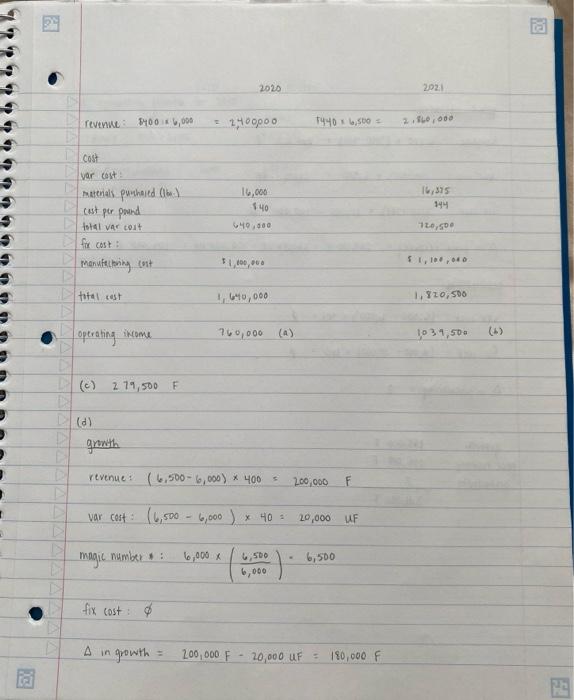 2020 2021
revenue: $400 x 6,000 = 2,400,000 $440 x 6,500 = 2,860,000
cost
var cost:
materials purchased (lbs.) 16,000 16,375
cost per pound $40 $44
total var cost 640,000 720,500
fix cost:
manufacturing cost $1,000,000 $1,100,000
total cost 1,640,000 1,820,500
operating income 760,000 (a) 1,039,500 (b)
(c) 279,500 F
(d)
growth
revenue: (6,500 - 6,000) x 400 = 200,000 F
var cost: (6,500 - 6,000) x 40 = 20,000 UF
magic number *: 6,000 x (6,500 / 6,000) = 6,500
fix cost: ∅
Δ in growth = 200,000 F - 20,000 UF = 180,000 F